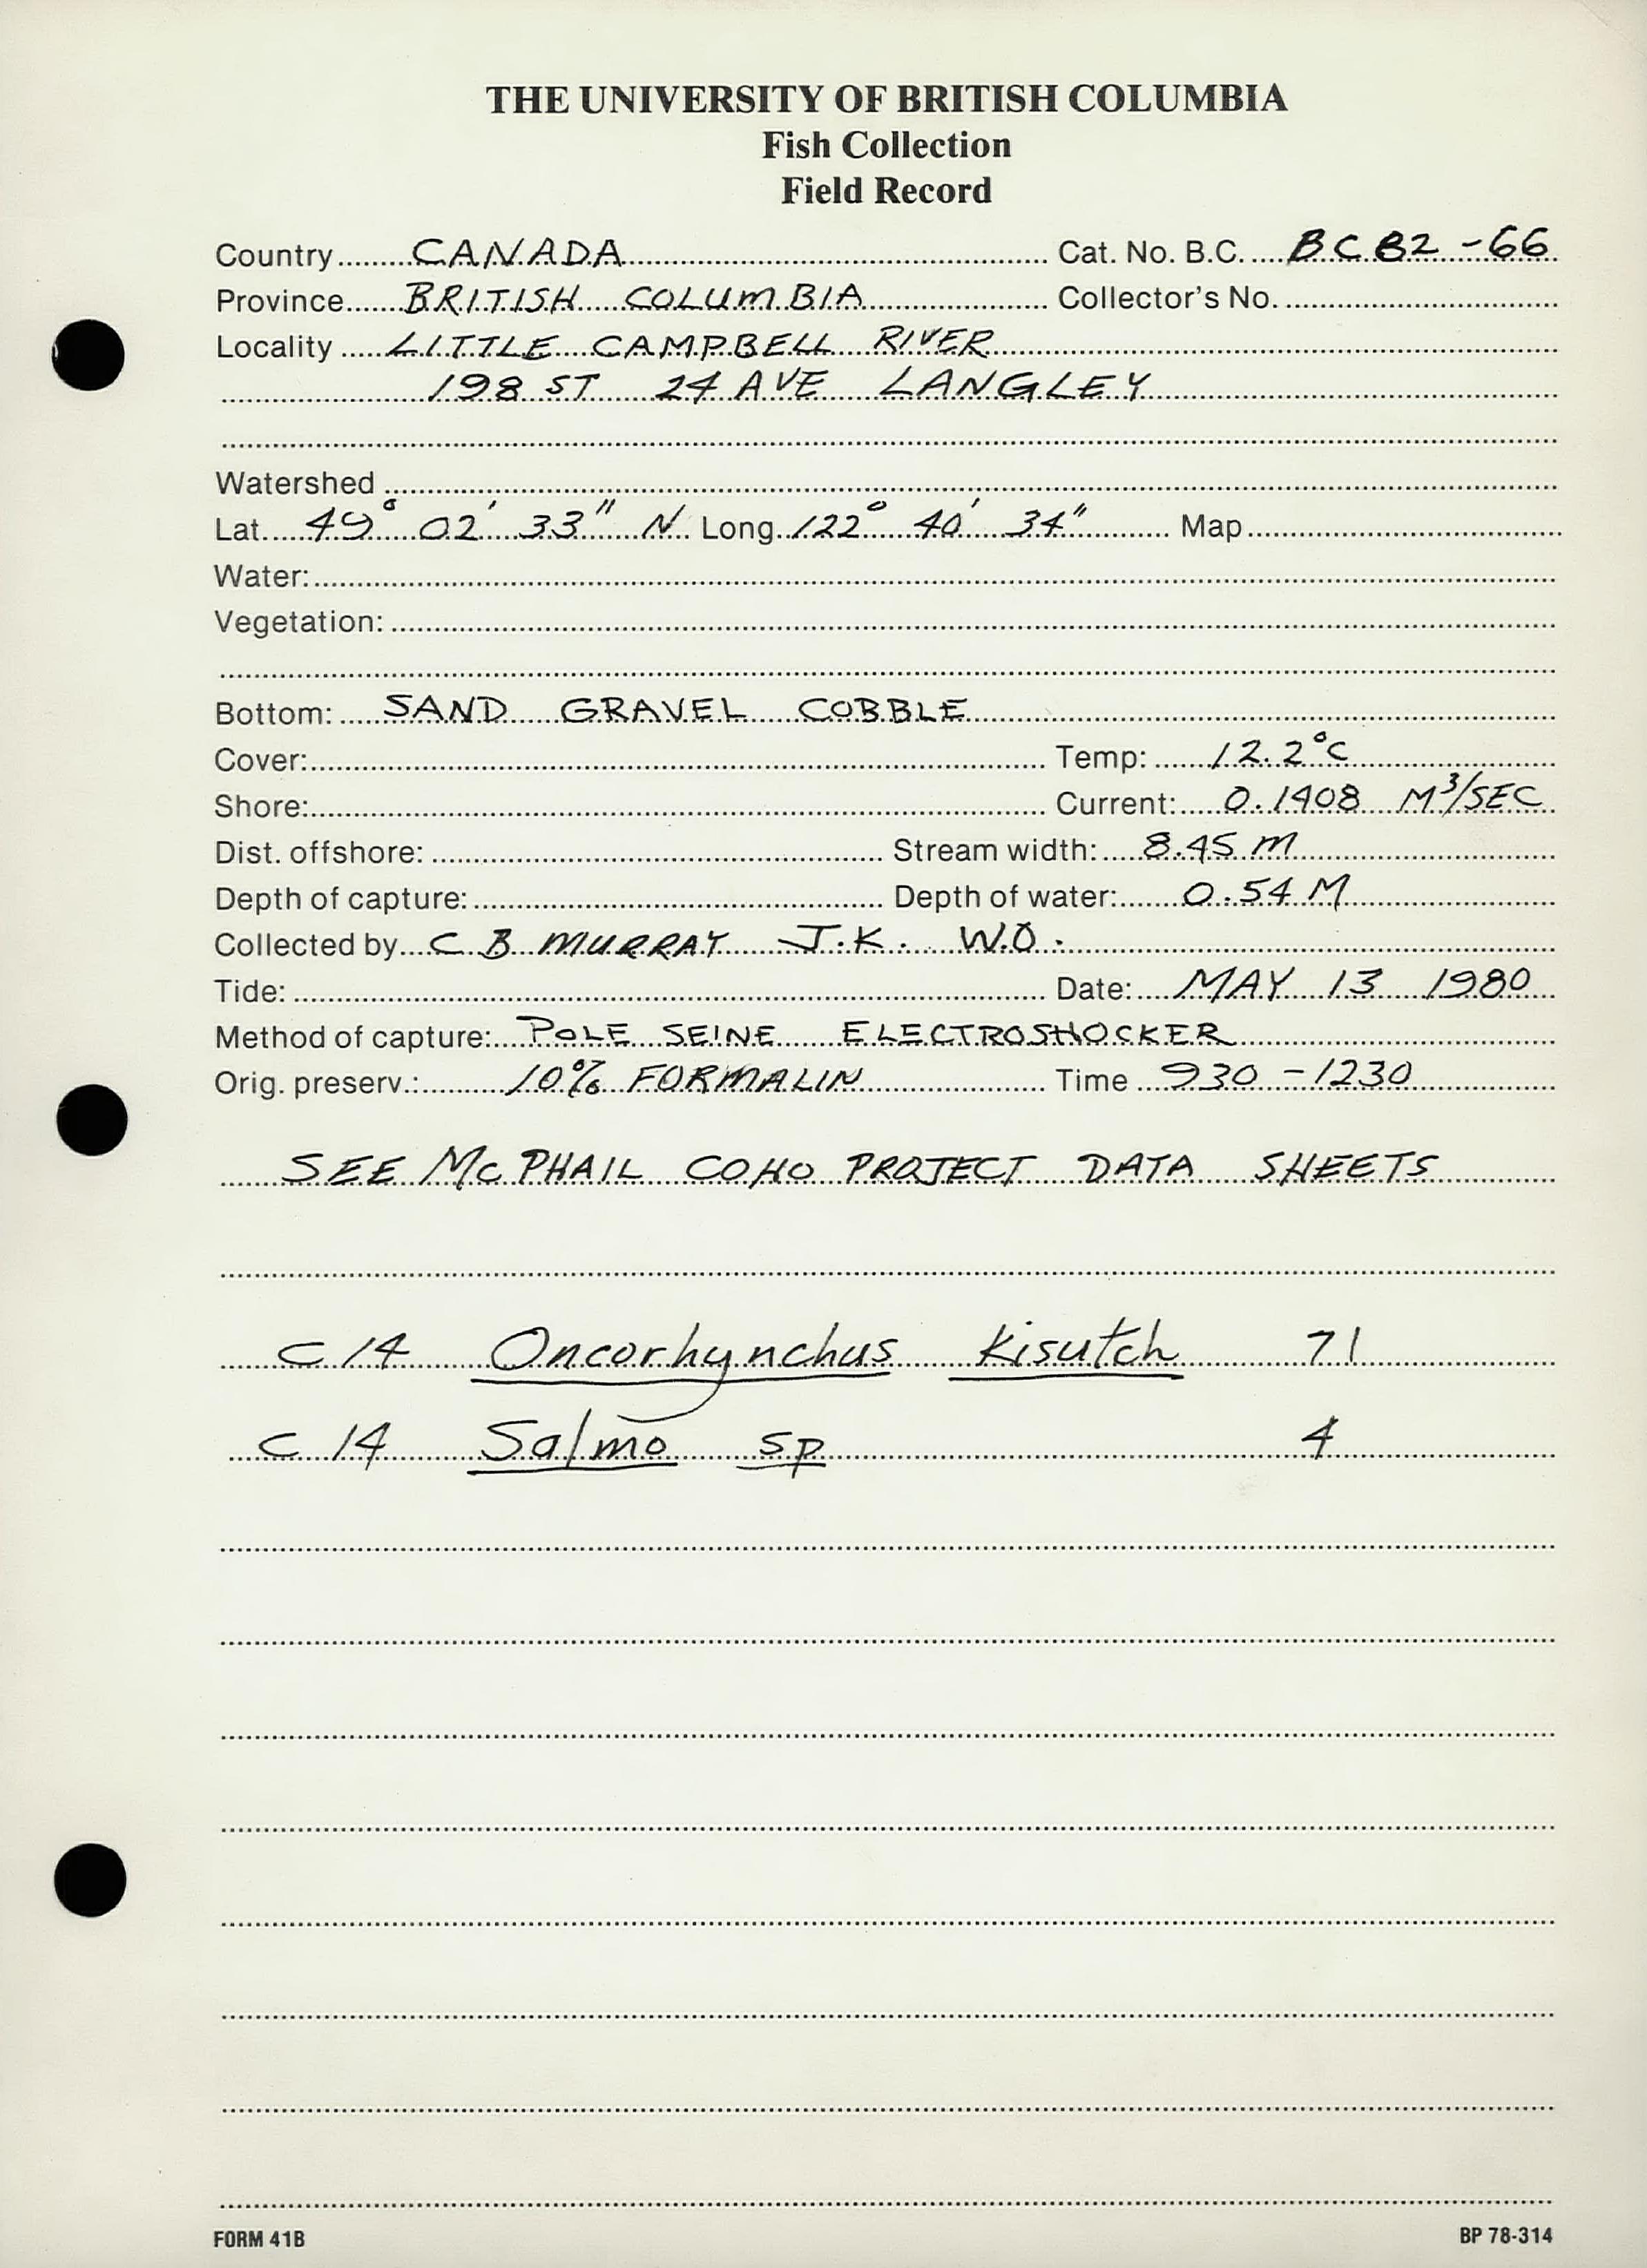 THE UNIVERSITY OF BRITISH COLUMBIA
Fish Collection
Field Record
Country CANADA Cat. No. B.C. BC 82-66
Province BRITISH COLUMBIA Collector's No.
Locality LITTLE CAMPBELL RIVER
198 ST 24 AVE LANGLEY
Watershed
Lat. 49° 02' 33" N Long. 122° 40' 34" Map
Water:
Vegetation:
Bottom: SAND GRAVEL COBBLE
Cover: Temp: 12.2°C
Shore: Current: 0.1408 M³/SEC
Dist. offshore: Stream width: 8.45 m
Depth of capture: Depth of water: 0.54 M
Collected by C B MURRAY J.K. W.O.
Tide: Date: MAY 13 1980
Method of capture: POLE SEINE ELECTROSHOCKER
Orig. preserv.: 10% FORMALIN Time 930 - 1230
SEE McPHAIL COHO PROJECT DATA SHEETS
C 14 Oncorhynchus Kisutch 71
C 14 Salmo sp 4
FORM 41B BP 78-314